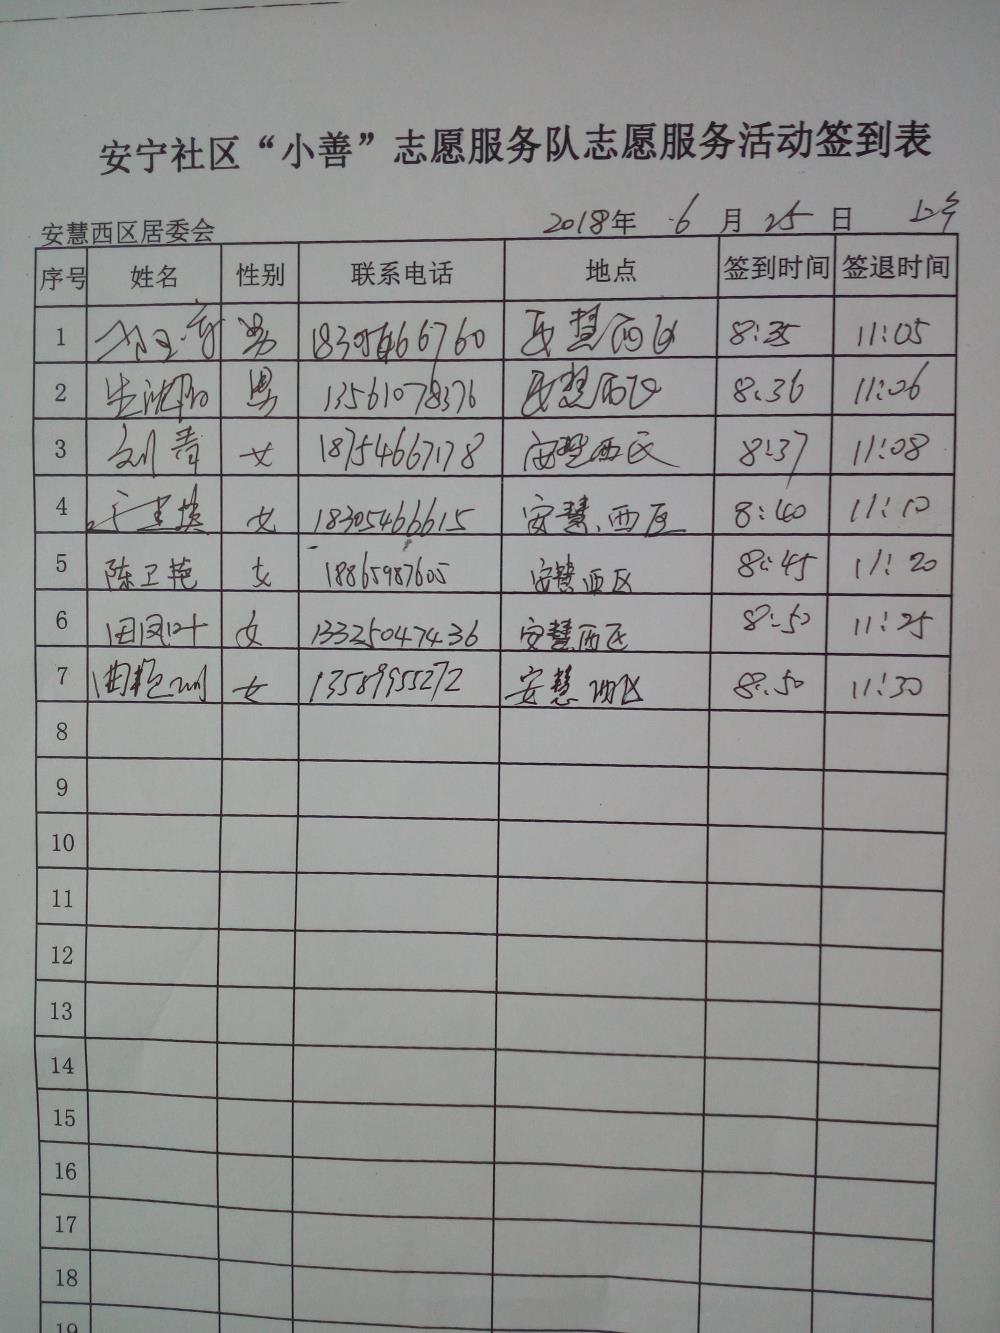 安宁社区“小善”志愿服务队志愿服务活动签到表
安慧西区居委会 2018年 6 月 25 日 上午
序号 姓名 性别 联系电话 地点 签到时间 签退时间
1 男 安慧西区 8:35 11:05
2 男 13561078376 安慧西区 8:36 11:06
3 刘青 女 18754667178 安慧西区 8:37 11:08
4 女 18305466615 安慧西区 8:40 11:10
5 陈卫艳 女 18865987605 安慧西区 8:45 11:20
6 田凤叶 女 13325047436 安慧西区 8:50 11:25
7 女 13589955272 安慧西区 8:50 11:30
8
9
10
11
12
13
14
15
16
17
18
19